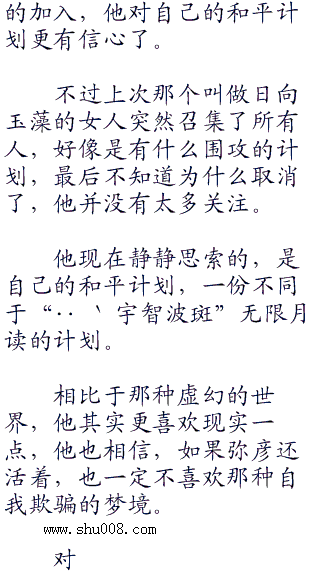 的加入，他对自己的和平计
划更有信心了。
不过上次那个叫做日向
玉藻的女人突然召集了所有
人，好像是有什么围攻的计
划，最后不知道为什么取消
了，他并没有太多关注。
他现在静静思索的，是
自己的和平计划，一份不同
于“·· 丶宇智波斑”无限月
读的计划。
相比于那种虚幻的世
界，他其实更喜欢现实一
点，他也相信，如果弥彦还
活着，也一定不喜欢那种自
我欺骗的梦境。
www.shu008.com
对